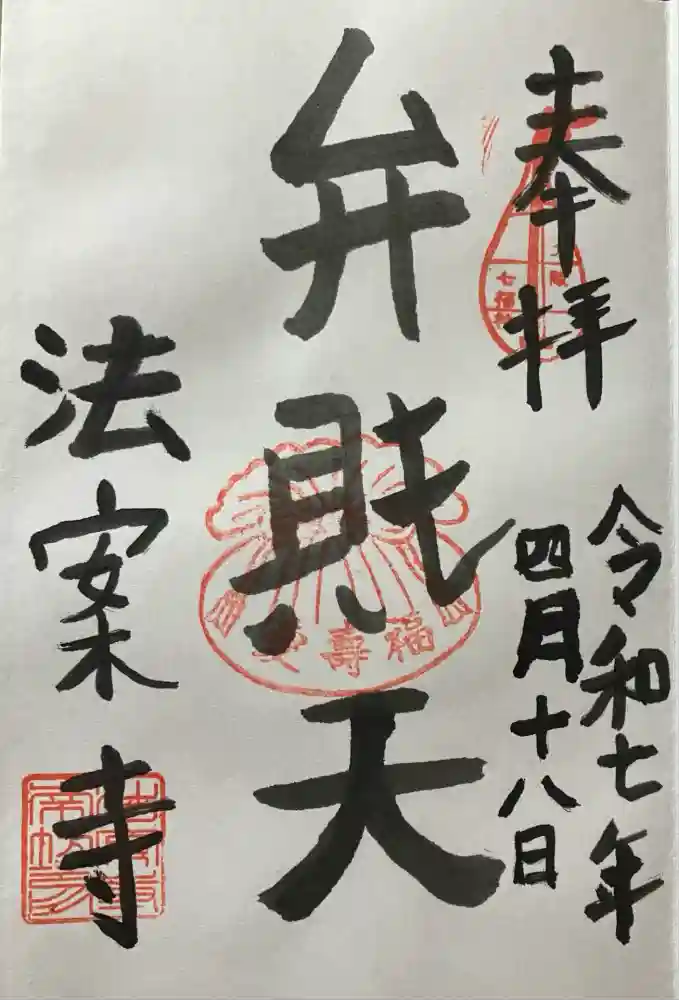 奉拝
令和七年
四月十八日
弁財天
法案寺
七福
福壽